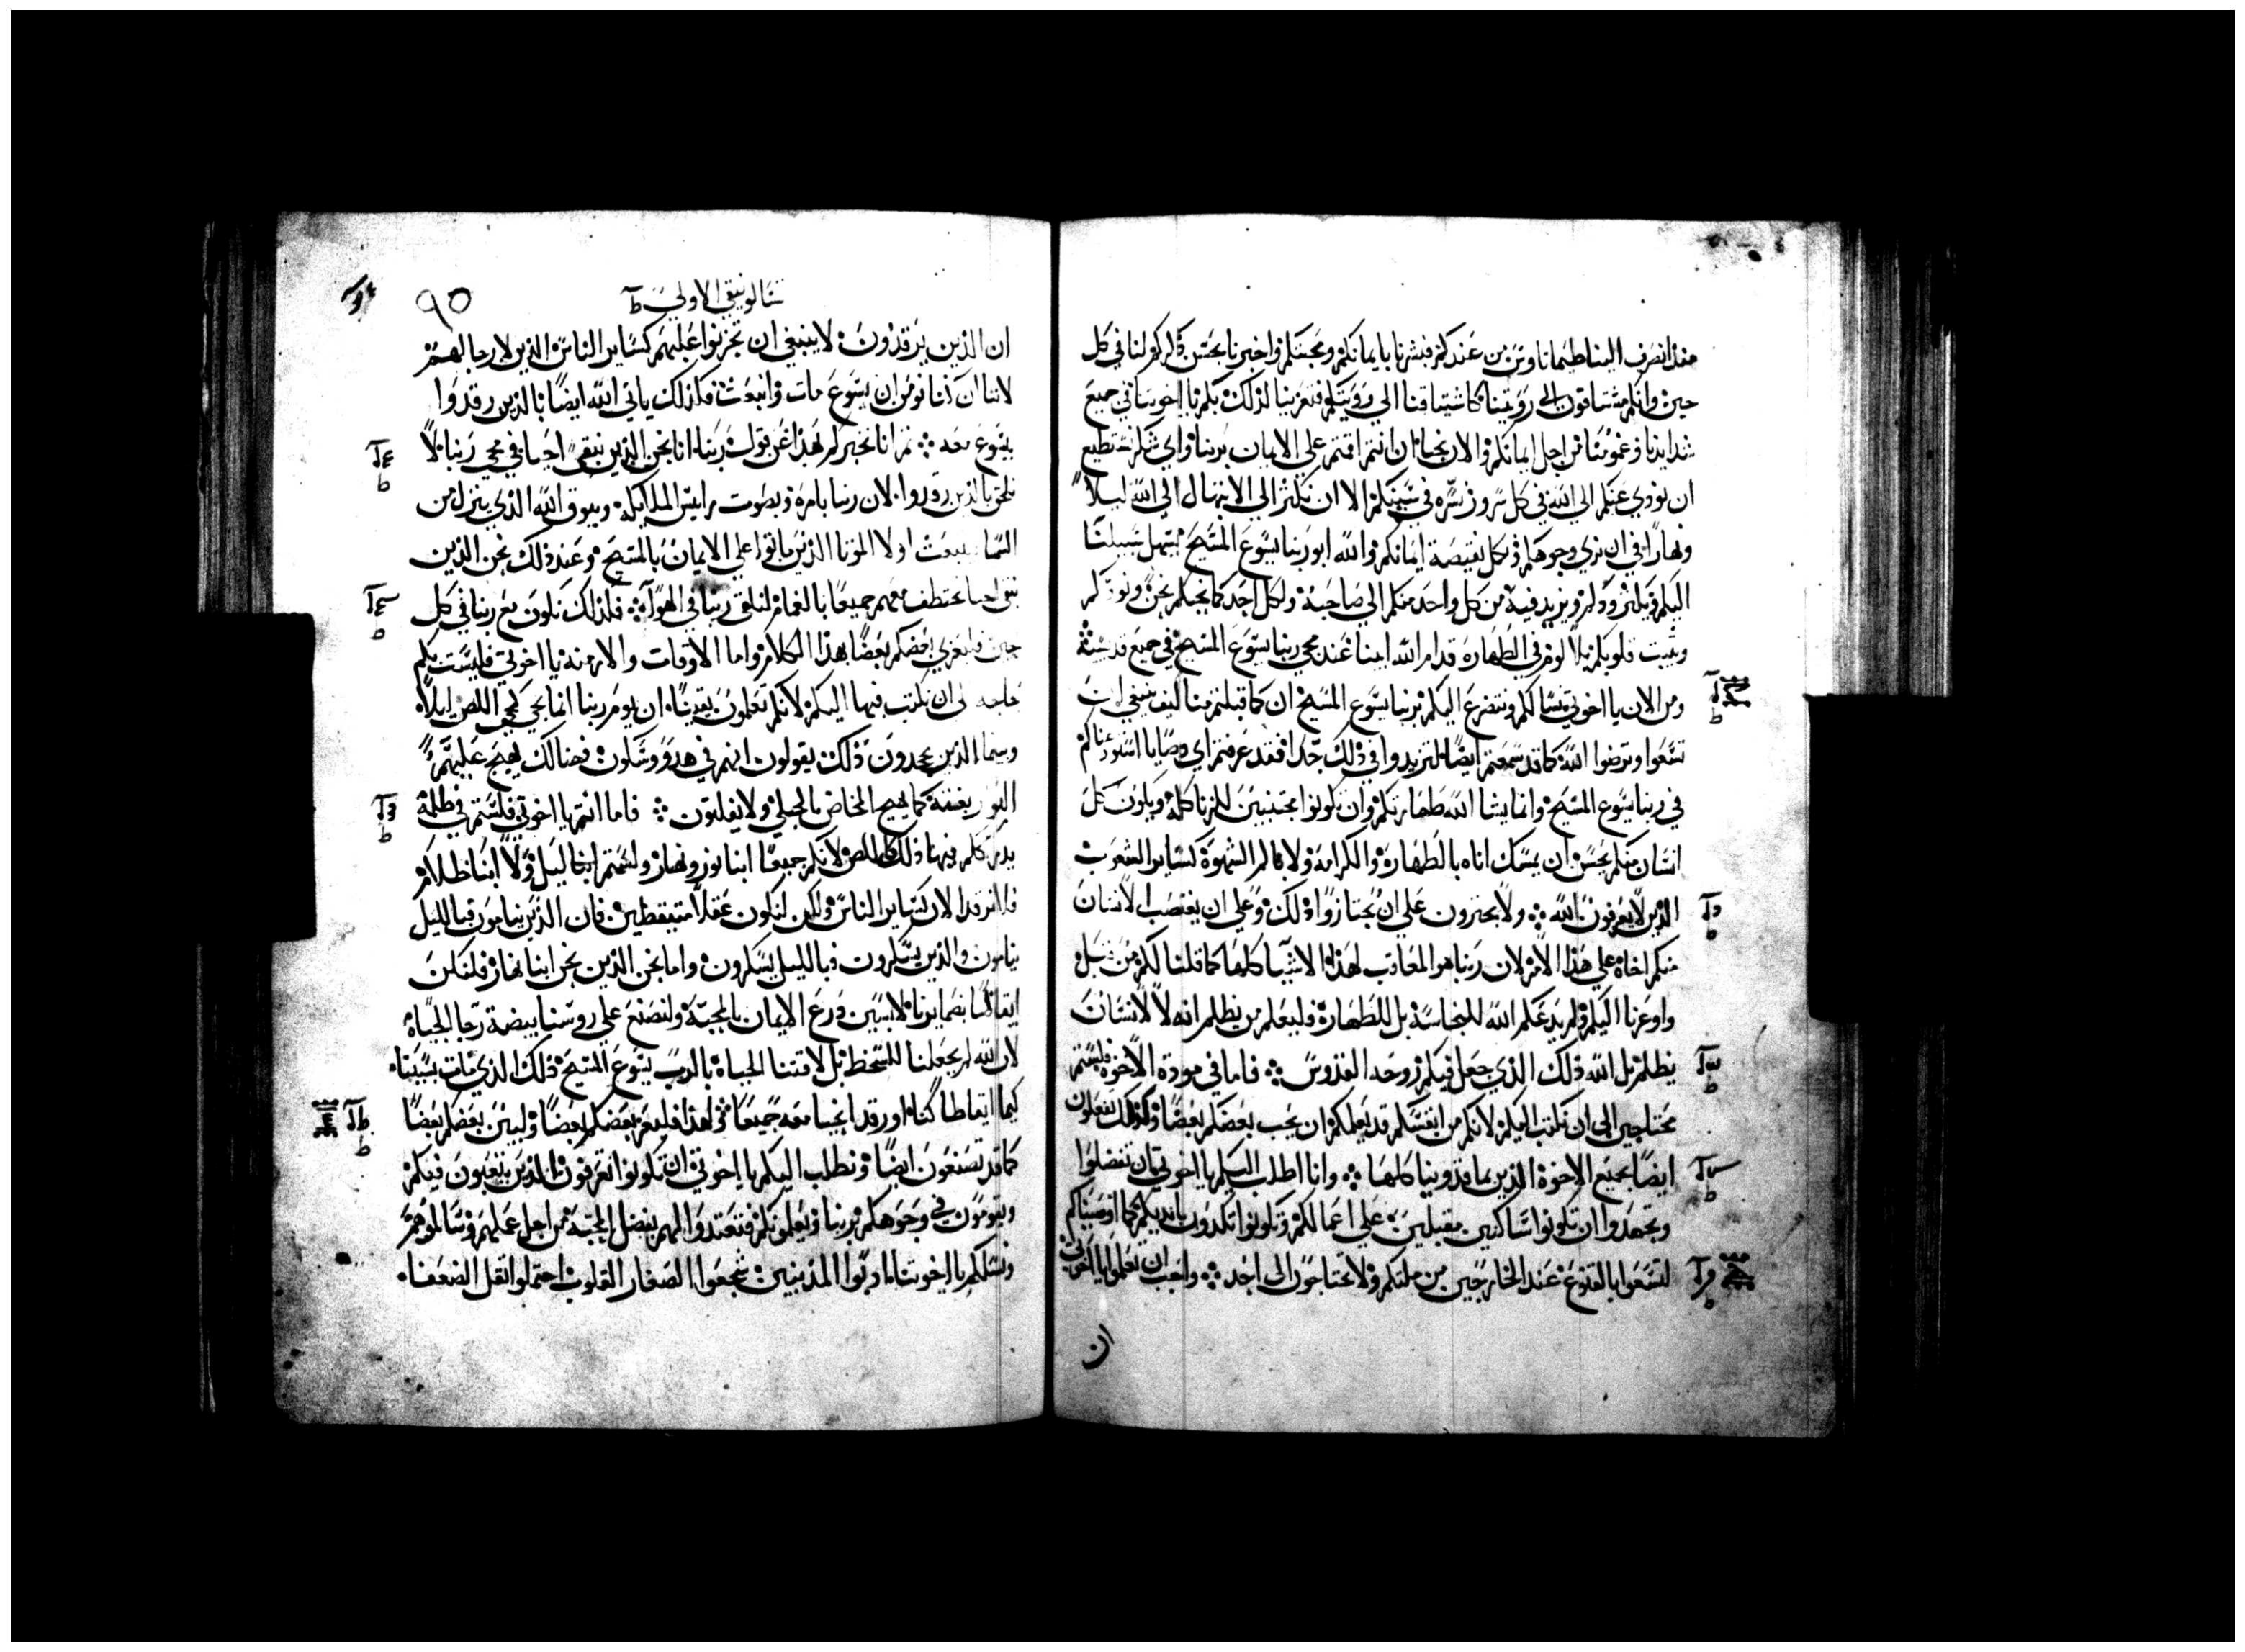 منذ انصرف الينا طيماتاوس من عندكم فبشرنا بايمانكم ومحبتكم واخبرنا بحسن ذكركم لنا في كل
حين وانكم مشتاقون الى رويتنا كاشتياقنا الي رويتكم فتعزينا لذلك بكم يا اخوتنا في جميع
شدايدنا وغمومنا من اجل ايمانكم والان نحيا ان انتم اقمتم علي الايمان بربنا واي شكر نستطيع
ان نودي عنكم الي الله في كل سرور نسره في سببكم الا ان نكثر الي الابتهال الى الله ليلاً
ونهاراً في ان نري وجوهكم ونكمل نقيصة ايمانكم والله ابو ربنا يسوع المسيح يسهل سبيلنا
اليكم ويكثر ودكم ويزيد فيه من كل واحد منكم الي صاحبه ولكل احد كما نحبكم نحن ونودكم
ويثبت قلوبكم بلا لوم في الطهارة قدام الله ابينا عند مجي ربنا يسوع المسيح في جميع قديسيه
ومن الان يا اخوتي نسالكم ونتضرع اليكم بربنا يسوع المسيح ان كما قبلتم منا كيف ينبغي ان
تسعوا وترضوا الله كما قد سمعتم ايضاً لتزيدوا في ذلك جداً فقد عرفتم اي وصايا استودعناكم
في ربنا يسوع المسيح وانما يشا الله طهارتكم وان تكونوا مجتنبين للزنا كله ويكون كل
انسان منكم يحسن ان يمسك اناه بالطهارة والكرامة ولا بالم الشهوة كساير الشعوب
الذين لا يعرفون الله ولا يجترون علي ان يجتازوا ذلك وعلي ان يغتصب الانسان
منكم اخاه علي هذا الامر لان ربنا هو المعاقب لهذه الاشيا كلها كما قلنا لكم من قبل
واوعزنا اليكم ولم يدعكم الله للنجاسة بل للطهارة فليعلم من يظلم انه لا لانسان
يظلم بل الله ذلك الذي جعل فيكم روحه القدوس فاما في مودة الاخوة فلستم
محتاجين الى ان نكتب اليكم لانكم من انفسكم قد يعلمكم ان يحب بعضكم بعضاً وكذلك تفعلون
ايضاً بجميع الاخوة الذين بماقدونيا كلها وانا اطلب اليكم يا اخوتي ان تفضلوا
وتجهدوا ان تكونوا ساكنين مقبلين علي اعمالكم وتكونوا تكدون بايديكم كما اوصيناكم
لتسعوا بالقنوع عند الخارجين من ملتكم ولا تحتاجون الى احد واجب ان تعلموا يا اخوتي
ان
تسالونيقي الاولي
٩٥
ان الذين يرقدون لا ينبغي ان تحزنوا عليهم كساير الناس الذين لا رجا لهم
لاننا ان كنا نومن ان يسوع مات وانبعث فكذلك ياتي الله ايضاً بالذين رقدوا
بيسوع معه ثم انا نخبركم بهذا عن قول ربنا انا نحن الذين نبقي احيا في مجي ربنا لا
نلحق بالذين رقدوا لان ربنا بامره وبصوت رايس الملايكة وببوق الله الذي ينزل من
السما ينبعث اولا الموتا الذين ماتوا علي الايمان بالمسيح وعند ذلك نحن الذين
نبقى احيا نختطف معهم جميعاً بالغمام لنلقي ربنا في الهوا فلذلك نكون مع ربنا في كل
حين فليعزي بعضكم بعضاً بهذا الكلام واما الاوقات والازمنه يا اخوتي فليست بكم
حاجه الى ان نكتب فيها اليكم لانكم تعلمون يقينا ان يوم ربنا انما يجي كمجي اللص ليلاً
وبينما الذين يجحدون ذلك يقولون انهم في هدو وسكون فهنالك يهيج عليهم
البوار بغتة كما يهيج المخاض بالحبلي ولا يفلتون فاما انتم يا اخوتي فلستم في ظلمة
يدرككم فيها ذلك كاللص لانكم جميعاً ابنا نور ونهار ولستم ابنا ليل ولا ابنا ظلام
فلا نرقد الان كساير الناس ولكن لنكون عقلا متيقظين فان الذين ينامون فبالليل
ينامون والذين يسكرون فبالليل يسكرون واما نحن الذين نحن ابنا نهار فلنكن
ايقاظاً بضمايرنا لابسين درع الايمان بالمحبة ولنضع علي روسنا بيضة رجا الحياة
لان الله لم يجعلنا للسخط بل لاقتنا الحياة بالرب يسوع المسيح ذلك الذي مات بسببنا
كيما ايقاظا كنا او رقدا نحيا معه جميعاً فلهذا فليعز بعضكم بعضاً وليبن بعضكم بعضاً
كما قد تصنعون ايضاً ونطلب اليكم يا اخوتي ان تكونوا تعرفون الذين يتعبون فيكم
ويقومون في وجوهكم بربنا ويعلمونكم فتعتدوا لهم بفضل المحبة من اجل عملهم وسالموهم
ونسلكم يا اخوتنا ادبوا المذنبين شجعوا الصغار القلوب احتملوا ثقل الضعفا